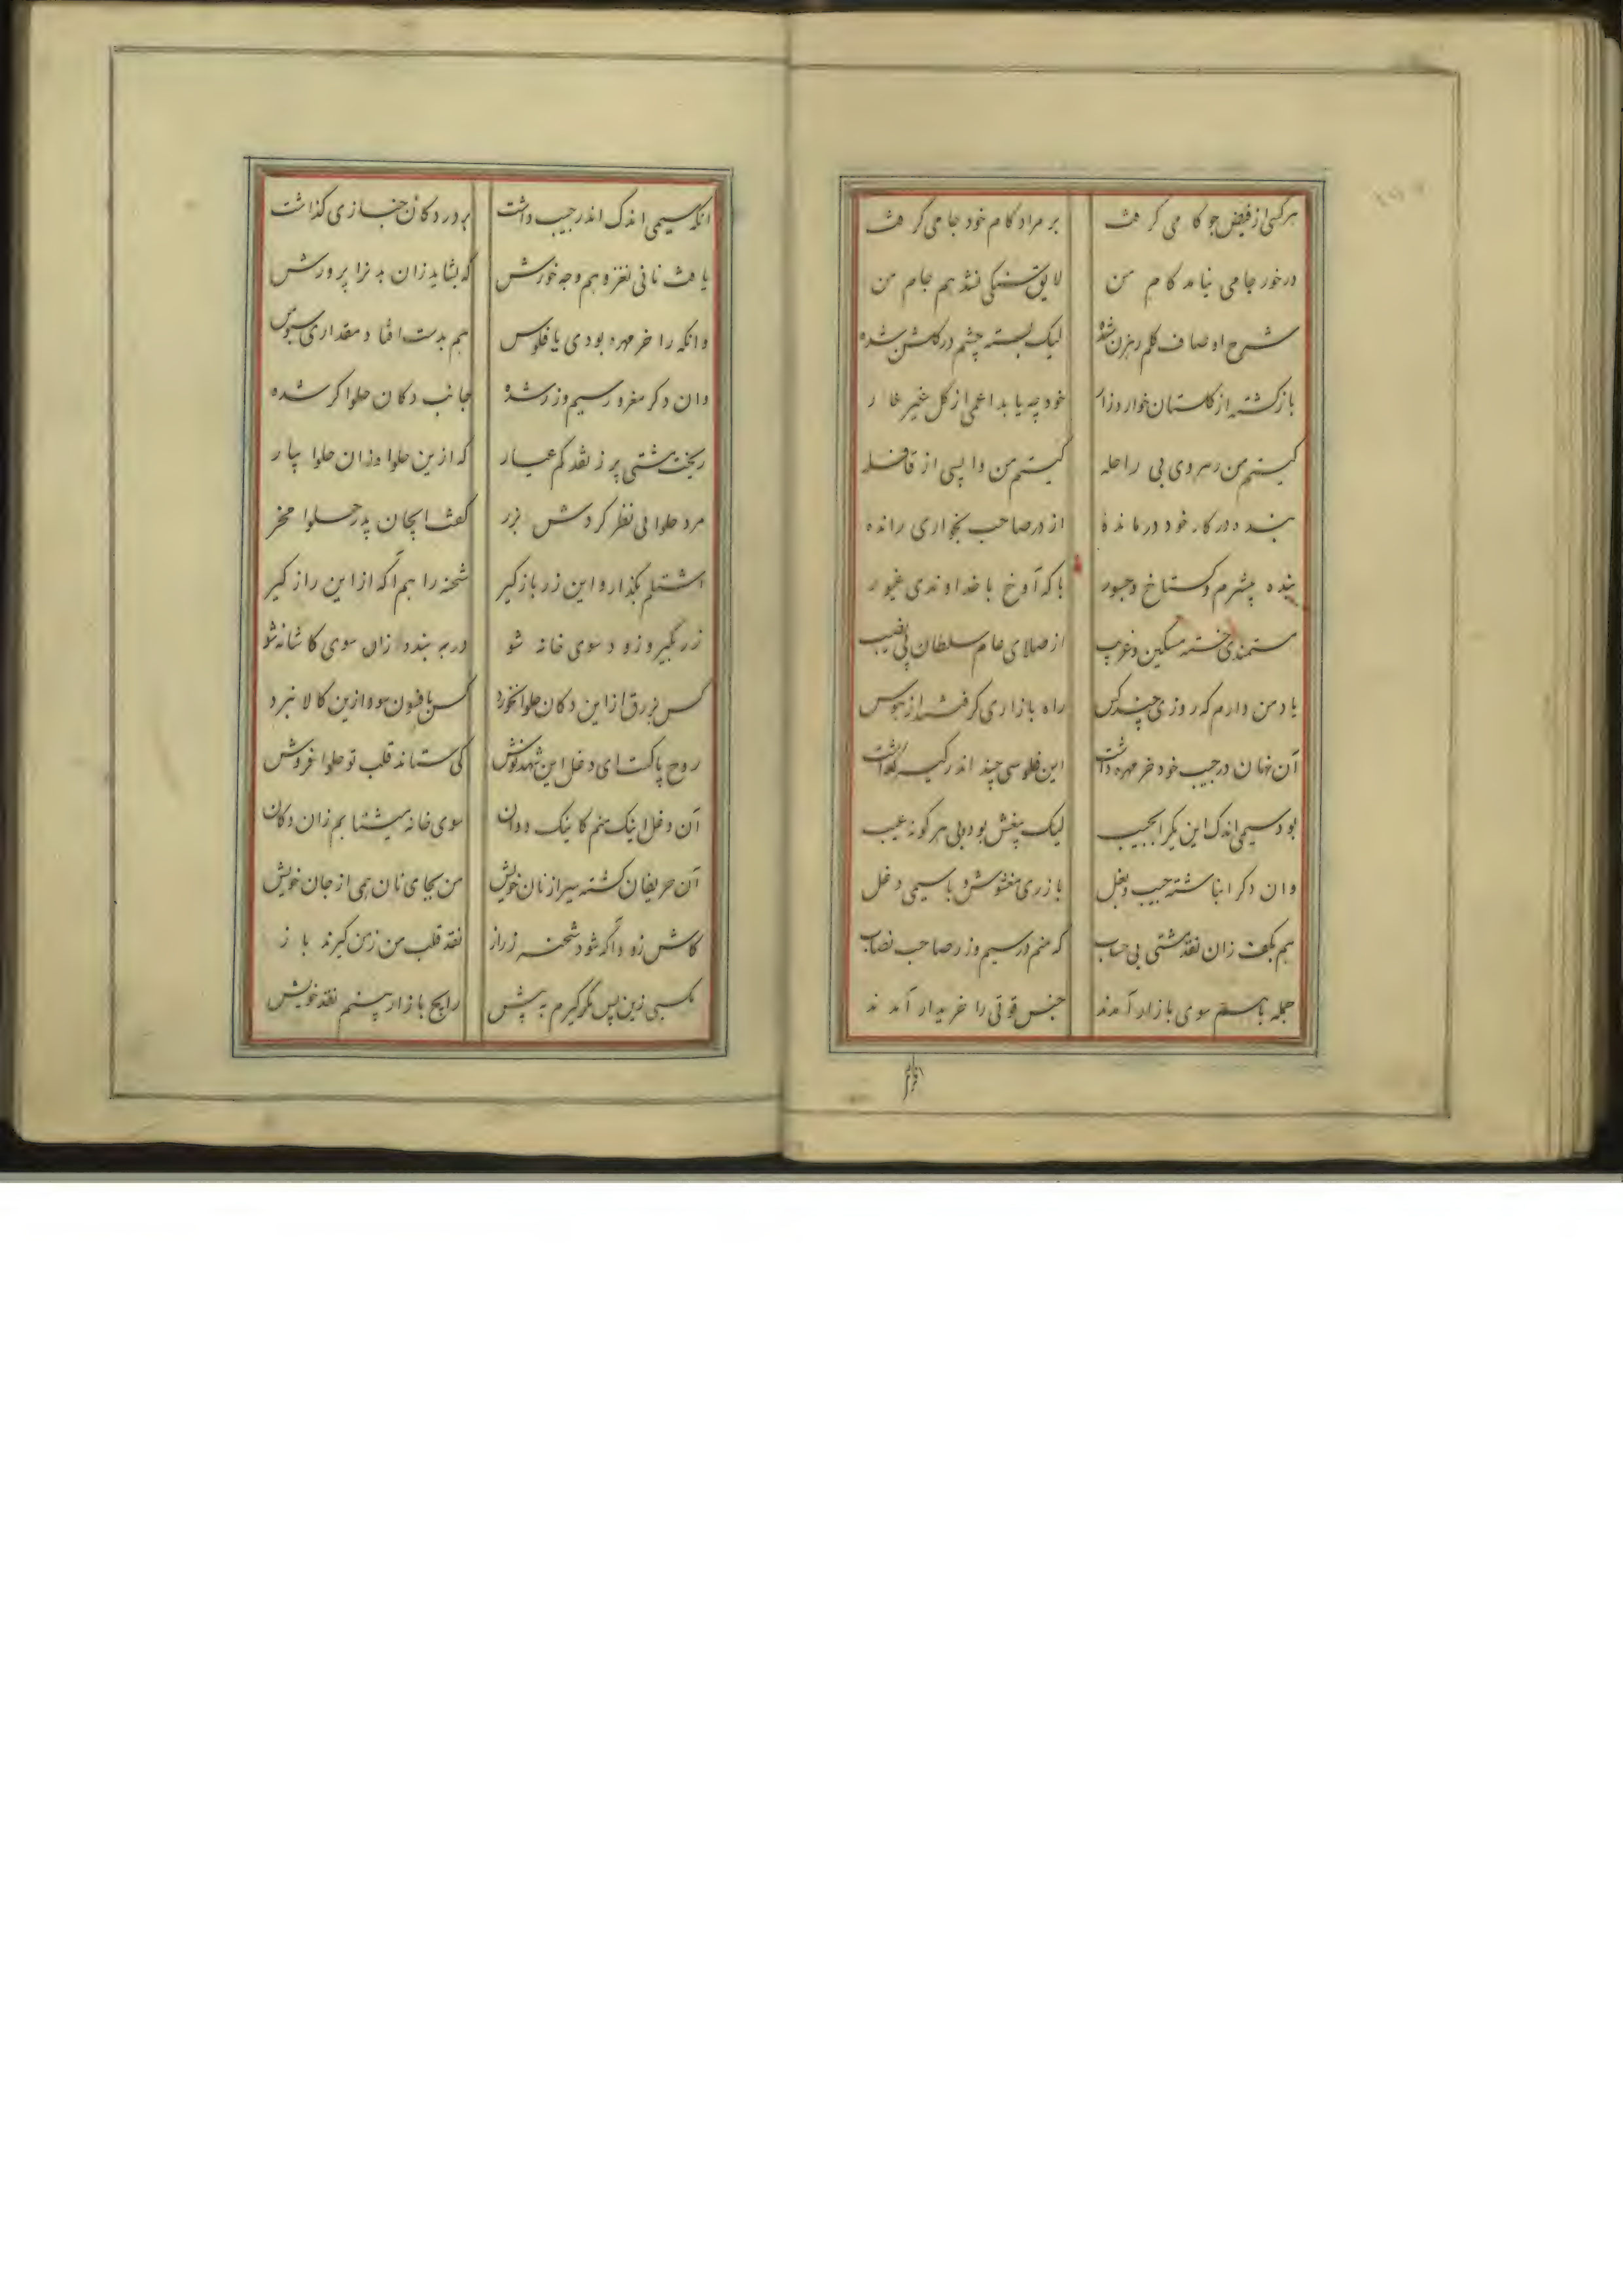 هر کسی از فیض جو کامی گرفت بر مراد کام خود جامی گرفت
در خور جامی نیامد کام من لایق سنگی نشد هم جام من
شرح اوصاف گلم رهزن شده لیک بسته چشم در گلشن شده
بازگشته از گلستان خوار و زار خود چه یابد اعمی از گل غیر خار
کیستم من رهروی بی راحله کیستم من واپسی از قافله
بنده در کار خود درمانده از در صاحب بخواری رانده
بنده بیشرم و گستاخ و جسور با که آوخ با خداوندی غیور
مستمندی خسته مسکین و غریب از صلای عام سلطان بی نصیب
یاد من دارم که روزی چند کس راه بازاری گرفتند از هوس
آن نهان در جیب خود خرمهره داشت این فلوسی چند اندر کیسه
بود سیمی اندک این یکرا بجیب لیک بیغش بود و بی هر گونه عیب
وان دگر انباشته جیب و بغل با زری مغشوش و با سیمی دغل
هم بکف زان نقد مشتی بی حساب که منم در سیم و زر صاحب نصاب
جمله باهم سوی بازار آمدند جنس قوتی را خریدار آمدند
آنکه سیمی اندک اندر جیب داشت بر در دکان خبازی گذاشت
یافت نانی نغز و هم وجه خورش که بشاید زان بدنرا پرورش
وانکه را خرمهره بودی یا فلوس هم بدست افتاد مقداری سبوس
وان دگر مغرور سیم و زر شده جانب دکان حلواگر شده
ریخت مشتی پر ز نقد کم عیار که ازین حلوا وزان حلوا بیار
مرد حلوائی نظر کردش بزر گفت ایجان پدر حلوا مخر
اشتلم بگذار و این زر باز گیر شحنه را هم آگه از این راز گیر
زر بگیر و زود سوی خانه شو در به بند و زان سوی کاشانه شو
کس بزرق از این دکان حلوا نخورد کس بافسون سود ازین کالا نبرد
روح پاکست ای دغل این شهد نوش کی ستاند قلب تو حلوا فروش
آن دغل اینک منم کاینک دوان سوی خانه میشتابم زان دکان
آن حریفان گشته سیر از نان خویش من بجای نان همی از جان خویش
کاش زود آگه شود شحنه ز راز نقد قلب من ز من گیرند باز
کسبی زین پس مگر گیرم به پیش رایج بازار بینم نقد خویش